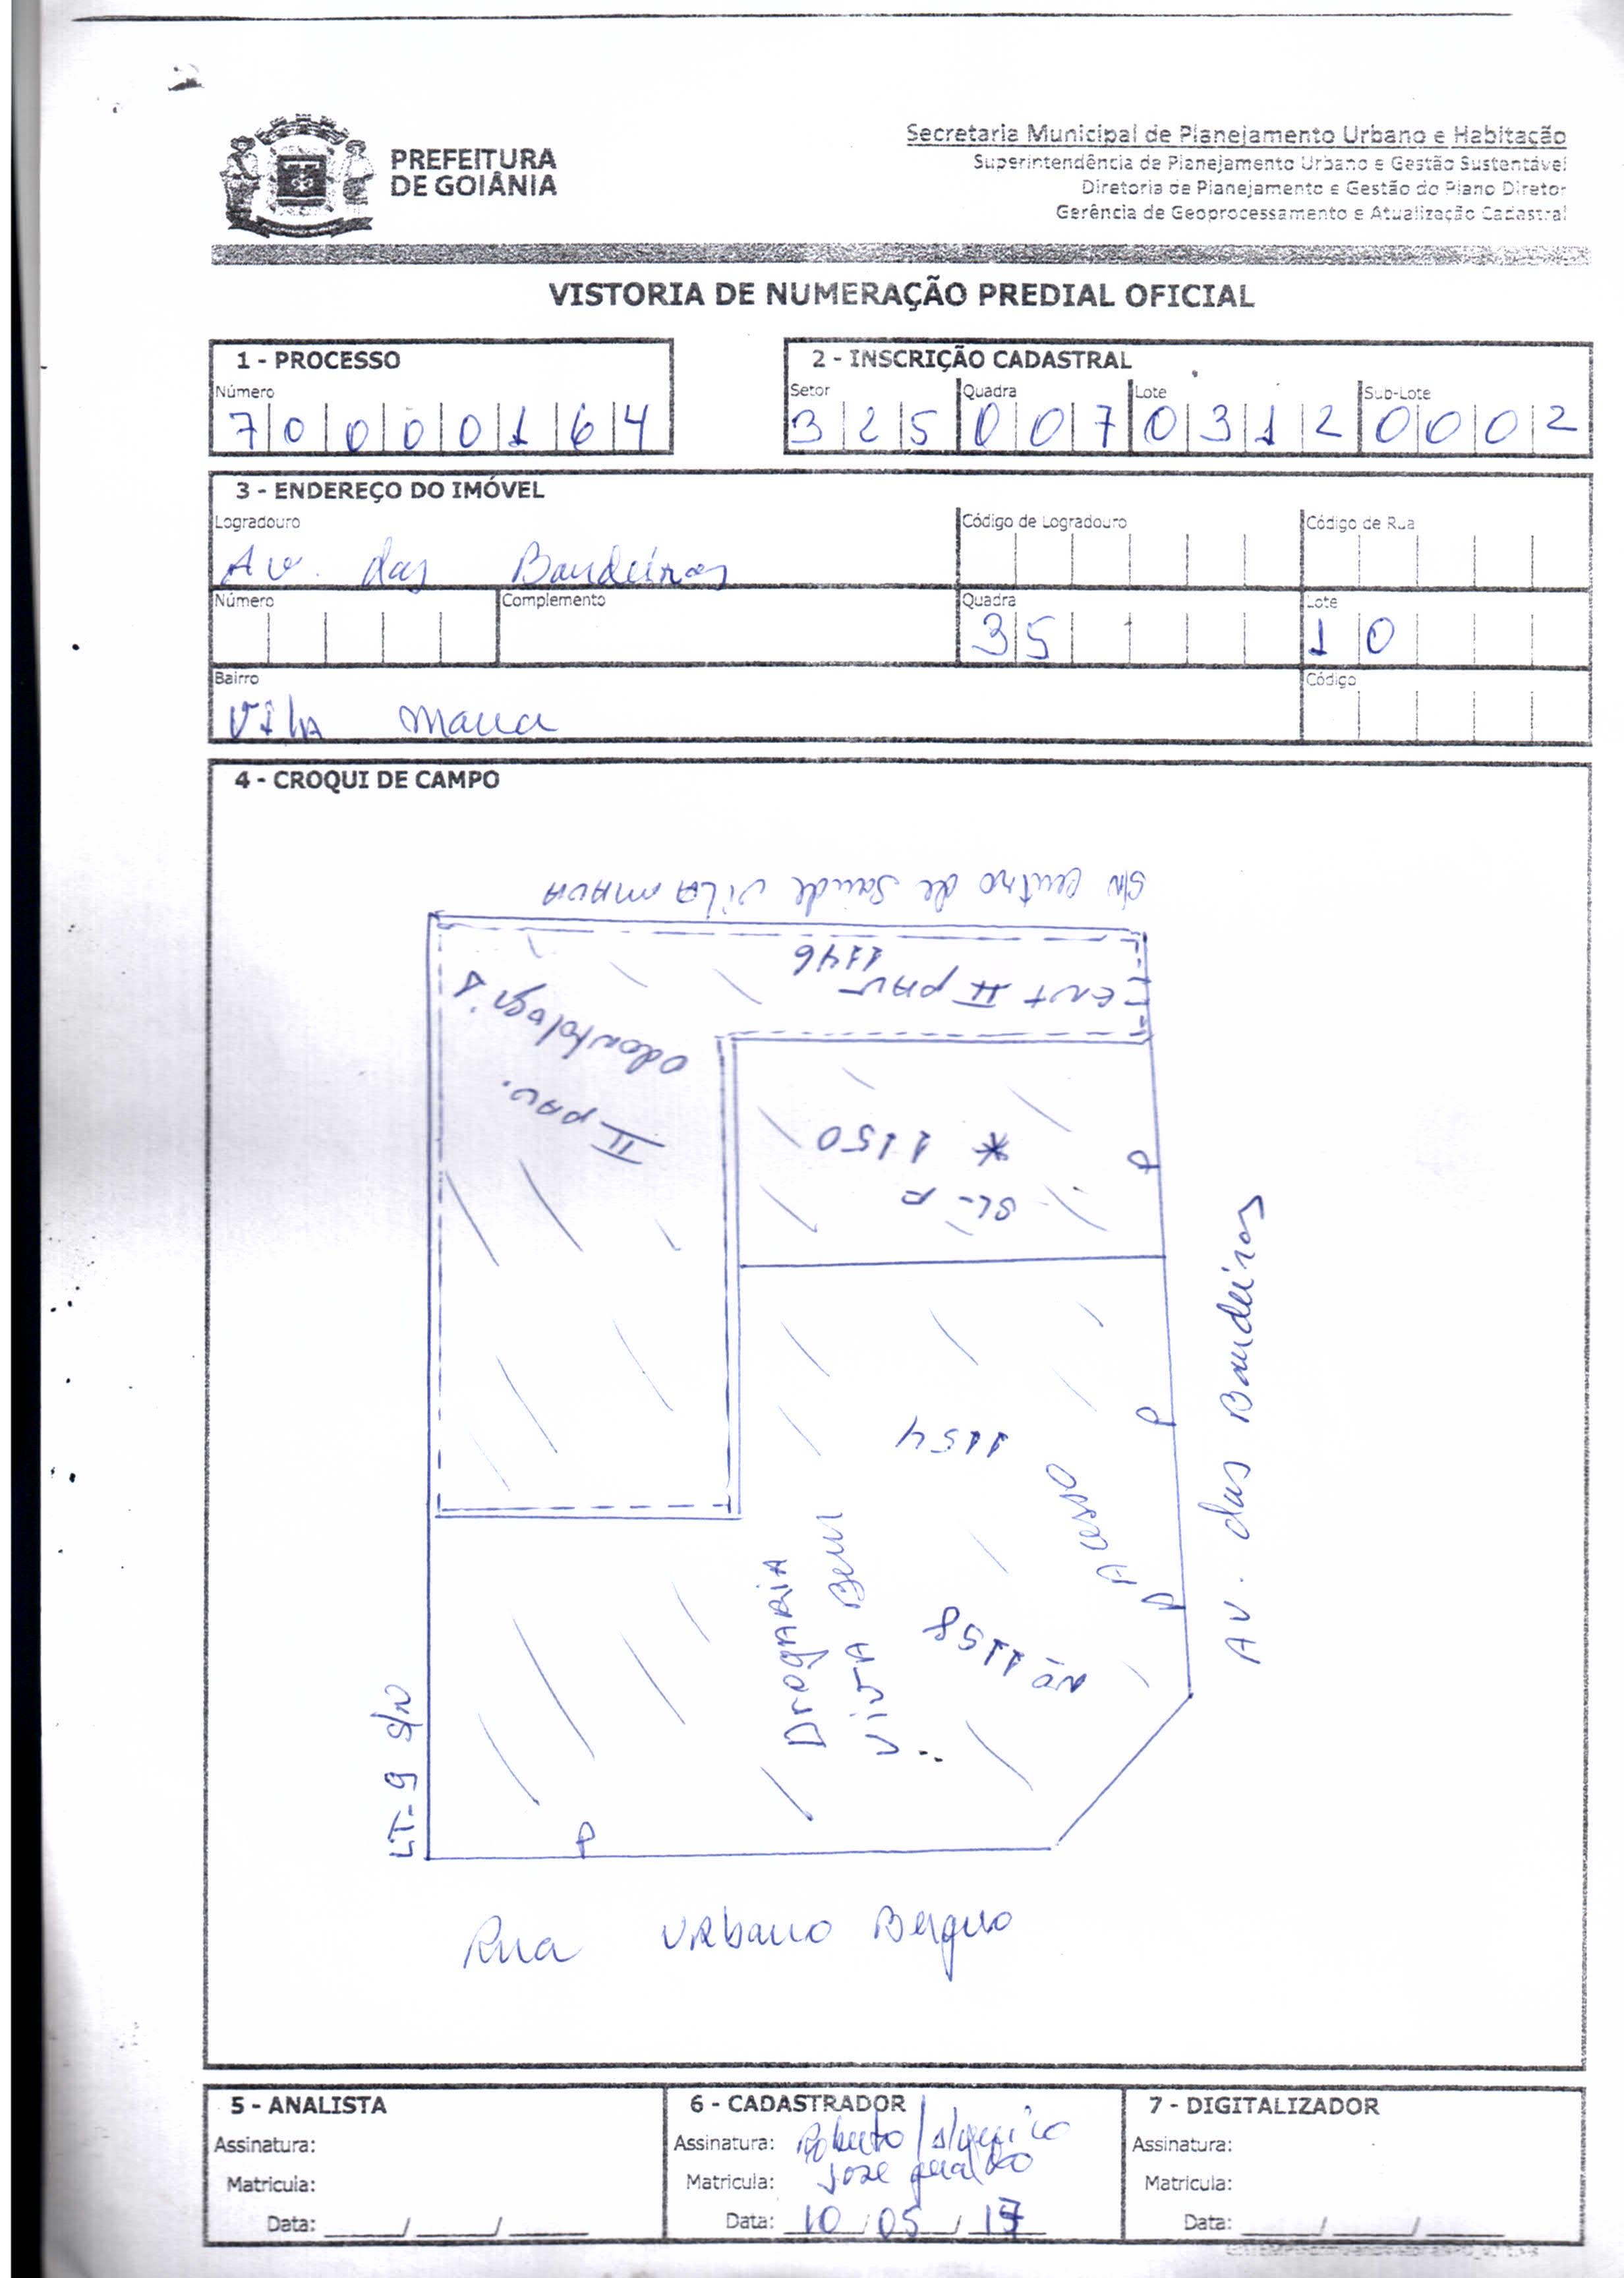 PREFEITURA
DE GOIÂNIA
Secretaria Municipal de Planejamento Urbano e Habitação
Superintendência de Planejamento Urbano e Gestão Sustentável
Diretoria de Planejamento e Gestão do Plano Diretor
Gerência de Geoprocessamento e Atualização Cadastral
VISTORIA DE NUMERAÇÃO PREDIAL OFICIAL
1 - PROCESSO
Número
7 0 0 0 0 1 6 4
2 - INSCRIÇÃO CADASTRAL
Setor Quadra Lote Sub-Lote
3 2 5 0 0 7 0 3 1 2 0 0 0 2
3 - ENDEREÇO DO IMÓVEL
Logradouro Código de Logradouro Código de Rua
Av. das Bandeiras
Número Complemento Quadra Lote
35 10
Bairro Código
Vila Maua
4 - CROQUI DE CAMPO
S/N Centro de Saude VILA MAUA
1146
ENT II PAV
Odontologia
II PAV.
* 1150
SL-A
P
Av. das Bandeiras
1154
P
Acesso
P
Nº 1158
DrogARiA
VivA Bem
LT-9 S/N
P
Rua Urbano Berquo
5 - ANALISTA
Assinatura:
Matricula:
Data: ____/____/____
6 - CADASTRADOR
Assinatura: Roberto /
Matricula: Jose Geraldo
Data: 10/05/17
7 - DIGITALIZADOR
Assinatura:
Matricula:
Data: ____/____/____